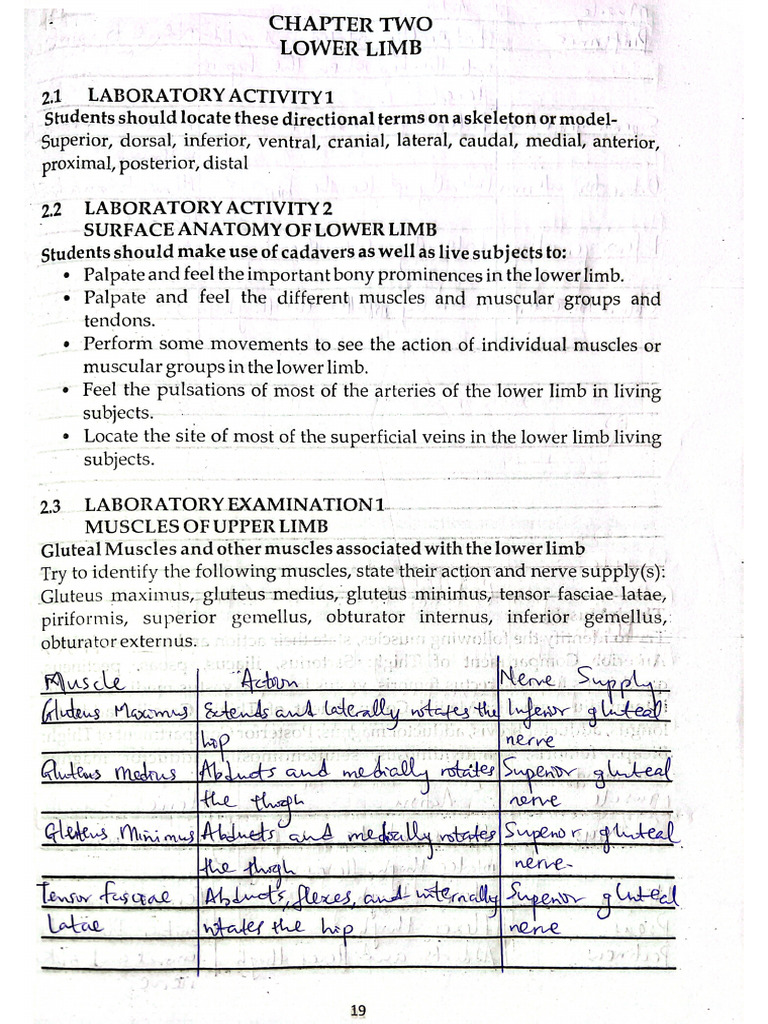 CHAPTER TWO
LOWER LIMB
2.1 LABORATORY ACTIVITY 1
Students should locate these directional terms on a skeleton or model-
Superior, dorsal, inferior, ventral, cranial, lateral, caudal, medial, anterior,
proximal, posterior, distal
2.2 LABORATORY ACTIVITY 2
SURFACE ANATOMY OF LOWER LIMB
Students should make use of cadavers as well as live subjects to:
• Palpate and feel the important bony prominences in the lower limb.
• Palpate and feel the different muscles and muscular groups and
tendons.
• Perform some movements to see the action of individual muscles or
muscular groups in the lower limb.
• Feel the pulsations of most of the arteries of the lower limb in living
subjects.
• Locate the site of most of the superficial veins in the lower limb living
subjects.
2.3 LABORATORY EXAMINATION 1
MUSCLES OF UPPER LIMB
Gluteal Muscles and other muscles associated with the lower limb
Try to identify the following muscles, state their action and nerve supply(s):
Gluteus maximus, gluteus medius, gluteus minimus, tensor fasciae latae,
piriformis, superior gemellus, obturator internus, inferior gemellus,
obturator externus.
Muscle Action Nerve Supply
Gluteus Maximus Extends and laterally rotates the Inferior gluteal
hip nerve
Gluteus Medius Abducts and medially rotates Superior gluteal
the thigh nerve
Gluteus Minimus Abducts and medially rotates Superior gluteal
the thigh nerve
Tensor fasciae Abducts, flexes, and internally Superior gluteal
Latae rotates the hip nerve
19